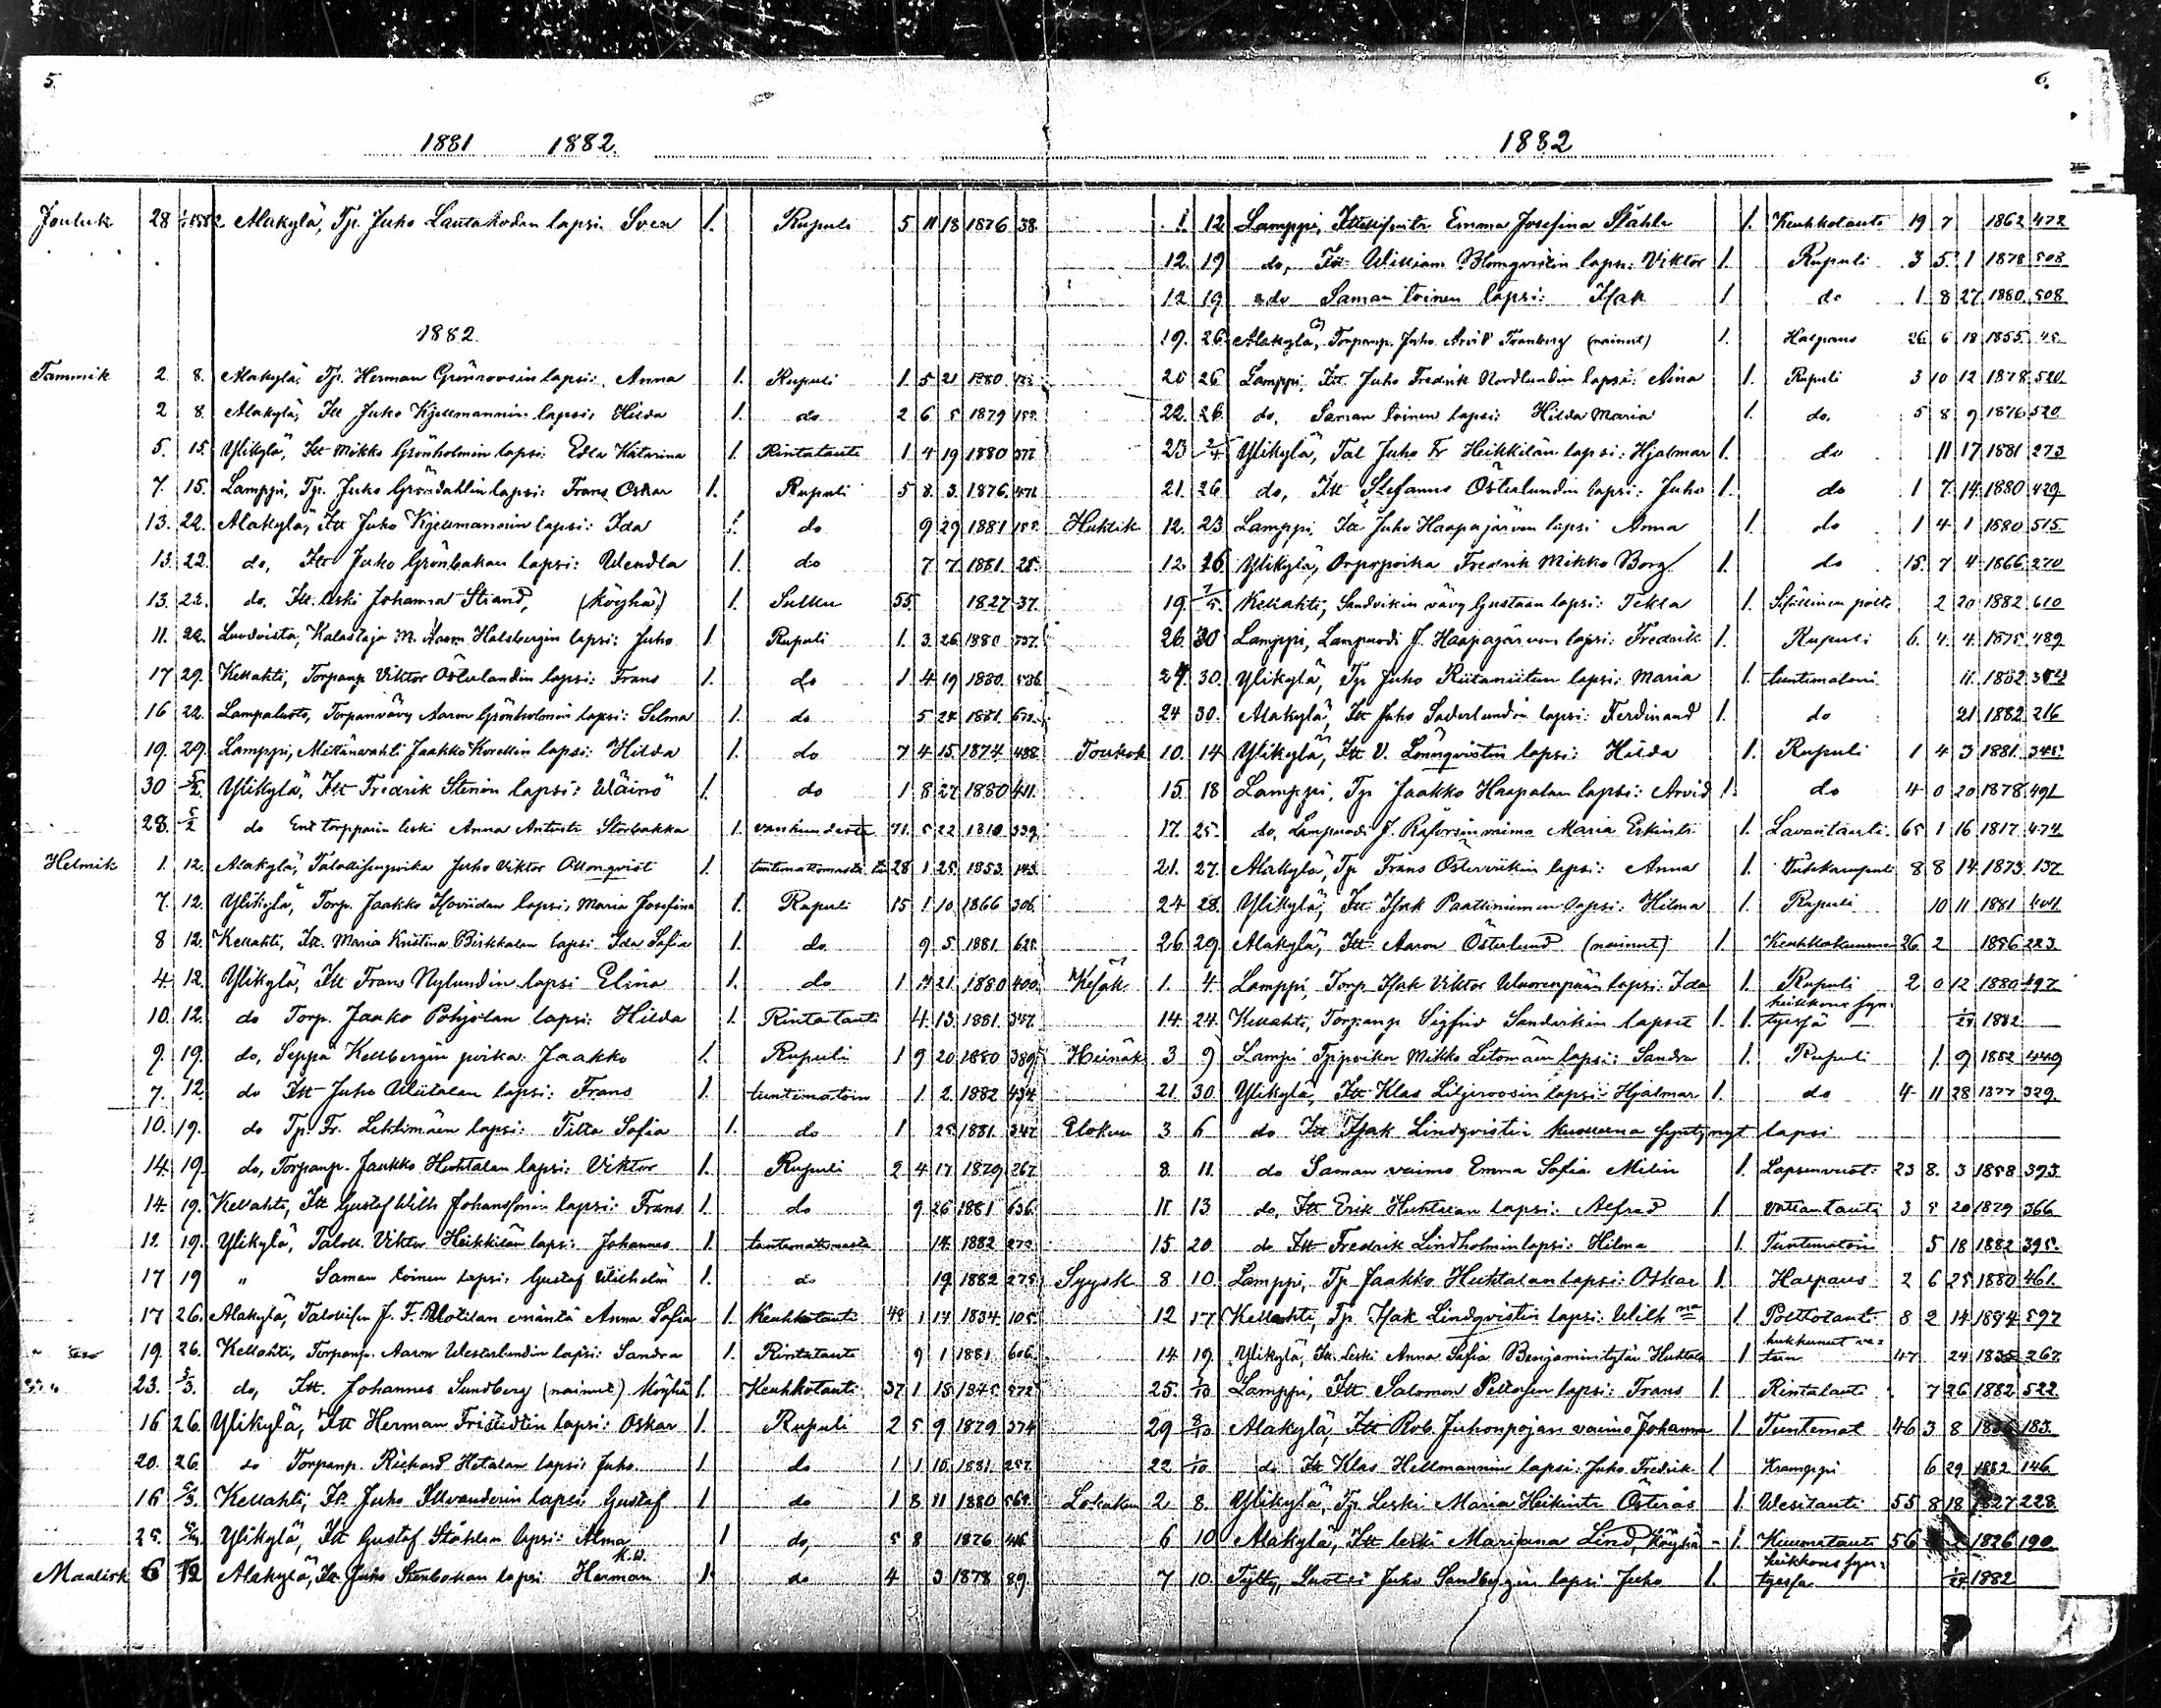 5.
1881 1882.
Jouluk 28 1/1 1882 Alakylä, Tp. Juho Lautakodan lapsi: Sven 1. Rupuli 5 11 18 1876 38.
1882.
Tammik 2 8. Alakylä, Tp. Herman Grönroosin lapsi: Anna 1. Rupuli 1 5 21 1880
2 8. Alakylä, Itt Juho Kjellmannin lapsi: Hilda 1. do 2 6 5 1879 158.
5. 15. Ylikylä, Itt Mikko Grönholmin lapsi: Edla Katarina 1. Rintatauti 1 4 19 1880 377.
7. 15. Lamppi, Tp. Juho Gröndahlin lapsi: Frans Oskar 1. Rupuli 5 8. 3. 1876. 471.
13. 22. Alakylä, Itt Juho Kjellmannin lapsi: Ida 1. do 9 29 1881 158.
13. 22. do, Itt Juho Grönbakan lapsi: Wendla 1. do 7 7. 1881. 25.
13. 22. do. Itt. leski Johanna Strand, (köyhä) 1. Sulku 55. 1827 37.
11. 22. Luodoista, Kalastaja M. Aaron Halsbergin lapsi: Juho 1. Rupuli 1. 3. 26 1880 737.
17 29. Kellahti, Torpanp Viktor Österlundin lapsi: Frans 1. do 1 4 19 1880. 586.
16 22. Lampaluoto, Torpanvävy Aaron Grönholmin lapsi: Selma 1. do 5 24 1881. 672.
19. 29. Lamppi, Mittänvahti Jaakko Korellin lapsi: Hilda 1. do 7 4 15. 1874. 488.
30 5/2. Ylikylä, Itt Fredrik Stenin lapsi: Wäinö 1. do 1 8 27 1880 411.
28. 5/2 do Ent torpparin leski Anna Antintr Storbakka 1. vanhuudesta 71. 5 22 1810. 339.
Helmik 1. 12. Alakylä, Talollisenpoika Juho Viktor Blomqvist 1. tuntemattomasta 28 1 25. 1853. 143.
7. 12. Ylikylä, Torp. Jaakko Hoviidan lapsi: Maria Josefina 1. Rupuli 15 1 10 1866 306.
8 12. Kellahti, Itt. Maria Kristina Birkkalan lapsi Ida Sofia 1. do. 9 5 1881. 625.
4. 12. Ylikylä, Itt Frans Nylundin lapsi Elina 1. do 1 7 21. 1880 400.
10. 12. do Torp. Jaako Pohjolan lapsi: Hilda 1. Rintatauti 4 13. 1881. 347.
9. 19. do, Seppä Kellbergin poika: Jaakko 1. Rupuli 1 9 20 1880 389.
7. 12. do Itt Juho Uusitalan lapsi: Frans 1. tuntematoin 1. 2. 1882 434.
10. 19. do Tp. Fr. Lehtimäen lapsi: Fitta Sofia 1. do 1 25 1881. 347.
14. 19. do, Torpanp. Jaakko Huhtalan lapsi: Viktor 1. Rupuli 2 4 17 1879 267.
14. 19. Kellahti, Itt Gustaf Wilh Johanssonin lapsi: Frans 1. do 9 26 1881 636.
12. 19. Ylikylä, Taloll. Viktor Heikkilän lapsi: Johannes 1. tuntemattomasta 14. 1882 273.
17 19 " Saman toinen lapsi: Gustaf Wilhelm 1. do 19. 1882 275.
17 26. Alakylä, Talollisen J. F. Uotilan emäntä Anna Sofia 1. Keuhkotauti 48 1 14 1834. 105.
19. 26. Kellahti, Torpanp. Aaron Westerlundin lapsi: Sandra 1. Rintatauti 9 1 1881. 606.
23. 5/3. do, Itt. Johannes Sundberg (nainut) köyhä 1. Keuhkotauti 37 1 18 1845. 572.
16 26. Ylikylä, Itt Herman Fristedtin lapsi: Oskar 1. Rupuli 2 5 9 1879 374
20. 26. do Torpanp. Rickard Hietalan lapsi: Juho. 1. do 1 1 10. 1881. 257.
16 5/3. Kellahti, Itt. Juho Illvanderin lapsi: Gustaf 1. do 1 8 11 1880 564.
25. 5/3. Ylikylä, Itt Gustaf Ståhlen lapsi: Alma 1 do, 5 8 1876 416
Maalisk 6 12 Alakylä, Itt. Juho Stenbakan lapsi Herman K.W. 1. do 4 3 1878 89.
6.
1882
1. 12. Lamppi, Ittellisentr Emma Josefina Ståhle 1. Keuhkotauti 19 7 1862 472
12. 19 do, Itt William Blomqvistin lapsi: Viktor 1. Rupuli 3 5. 1 1878 508
12 19 do Saman toinen lapsi: Isak 1 do 1 8 27. 1880. 508
19. 26. Alakylä, Torpanp. Juho Arvid Tranberg (nainut) 1. Halpaus 26. 6 18 1855. 45.
20 26 Lamppi, Itt. Juho Fredrik Nordlundin lapsi: Aina 1. Rupuli 3 10 12 1878 520.
22. 26. do, Saman toinen lapsi: Hilda Maria 1. do. 5 8 9 1876 520
23 2/4 Ylikylä, Tal Juho Fr Heikkilän lapsi: Hjalmar 1. do 11 17 1881 273
21. 26. do, Itt Stefanus Österlundin lapsi: Juho 1. do 1 7. 14. 1880 429.
Huhtik 12. 23 Lamppi, Itt Juho Haapajärven lapsi Anna 1. do 1 4 1 1880 515.
12. 16 Ylikylä, Orpopoika Fredrik Mikko Borg 1. do 15. 7 4 1866. 270
19. 7/5. Kellahti, Sandvikin vävy Gustaan lapsi: Tekla 1. Sisällinen polte 2 20 1882 610
26. 30 Lamppi, Lampuodi J. Haapajärven lapsi: Fredrik 1. Rupuli 6. 4. 4. 1875. 489.
24. 30. Ylikylä, Tp Juho Riitamiitun lapsi: Maria 1. tuntematoin 11. 1882
24 30. Alakylä, Itt Juho Söderlundin lapsi: Ferdinand 1. do 21 1882. 216
Toukok 10. 14 Ylikylä, Itt V. Lönnqvistin lapsi: Hilda 1. Rupuli 1 4 3 1881. 345.
15. 18 Lamppi, Tp Jaakko Haapalan lapsi: Arvid 1. do 4 0 20 1878. 491.
17. 25. do, Lampuodi J. Raforsin vaimo Maria Erkintr 1. Lavantauti. 65 1 16 1817. 474.
21. 27. Alakylä, Tp Frans Östervikin lapsi: Anna 1. Tuhkarupuli 8 8 14. 1873. 137.
24 28. Ylikylä, Itt Isak Paattiniemen lapsi: Hilma 1. Rupuli 10 11 1881 404.
26. 29. Alakylä, Itt Aaron Österlund (nainut) 1. Keuhkokuume 26. 2 1856 223.
Kesäk 1. 4. Lamppi, Torp Isak Viktor Wuorenpään lapsi: Ida 1. Rupuli 2 0 12 1880 497.
14. 24. Kellahti, Torpanp Sigfrid Sandvikin lapset 1. 1. heikkous syn=
tyessä 1/24 1882.
Heinäk 3 9 Lampi Tp.poikan Mikko Letomäen lapsi: Sandra 1. Rupuli 1. 9 1882 449
21. 30. Ylikylä, Itt Klas Liljeroosin lapsi: Hjalmar 1. do 4 11 28 1877 329.
Elokuu 3 6 do Itt Isak Lindqvistin kuolleena syntynyt lapsi
8. 11. do Saman vaimo Emma Sofia Milin 1. Lapsenvuot: 23 8. 3 1858 393.
11. 13 do, Itt Erik Huhtalan lapsi: Alfred 1. Vattantauti 3 5 20 1879 366
15. 20 do Itt Fredrik Lindholmin lapsi: Hilma 1. Tuntematoin 5 18 1882 395.
Syysk 8 10. Lamppi, Tp Jaakko Huhtalan lapsi: Oskar 1. Halpaus 2 6 25 1880 461.
12 17 Kellahti, Tp Isak Lindqvistin lapsi: Wilh na 1 Polttotauti 8 2 14 1874 597
14. 19. Ylikylä, Itt. leski Anna Sofia Benjamintytär Huhtala 1 hukkunut ve=
teen 47 24 1835 267.
25. 1/10 Lamppi, Itt Salomon Peltosen lapsi: Frans 1. Rintatauti 7 26 1882 522
29 8/10 Alakylä, Itt Rob. Juhonpojan vaimo Johanna 1. Tuntemat 46 3 8 1836 183.
22 1/10 do Itt Klas Hellmannin lapsi: Juho Fredrik 1 Kramppi 6 29 1882 146
Lokakuu 2 8. Ylikylä, Tp. Leski Maria Heikintr Österås 1. Wesitauti 55 8 18 1827 228
6 10 Alakylä, Itt leski Marjana Lind, Köyhä 1. Kuumetauti 56 1826 190.
7 10. Tytty, Luotsi Juho Sandbergin lapsi Juho 1. heikkous syn=
tyessä 1/24 1882